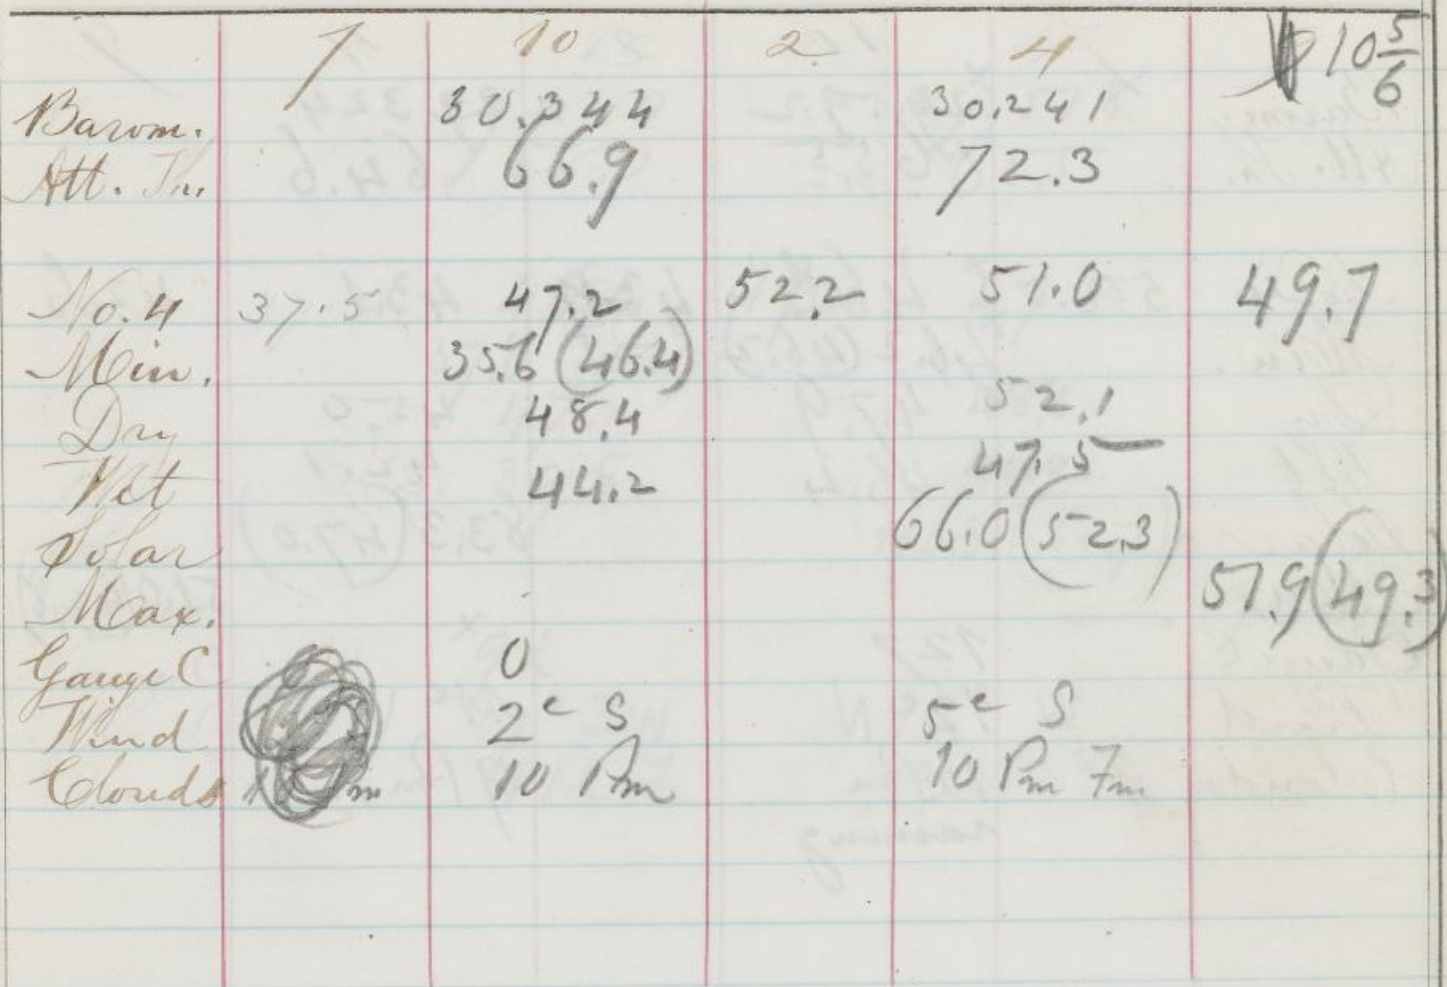 7 10 2 4 10 5/6
Barom. 30.344 30.241
Att. Th. 66.9 72.3
No. 4 37.5 47.2 52.2 51.0 49.7
Min. 35.6 (46.4)
Dry 48.4 52.1
Wet 44.2 47.5
Solar 66.0 (52.3)
Max. 51.9 (49.3)
Gauge C 0
Wind 2c S 5c S
Clouds 10 Pm 10 Pm Fm